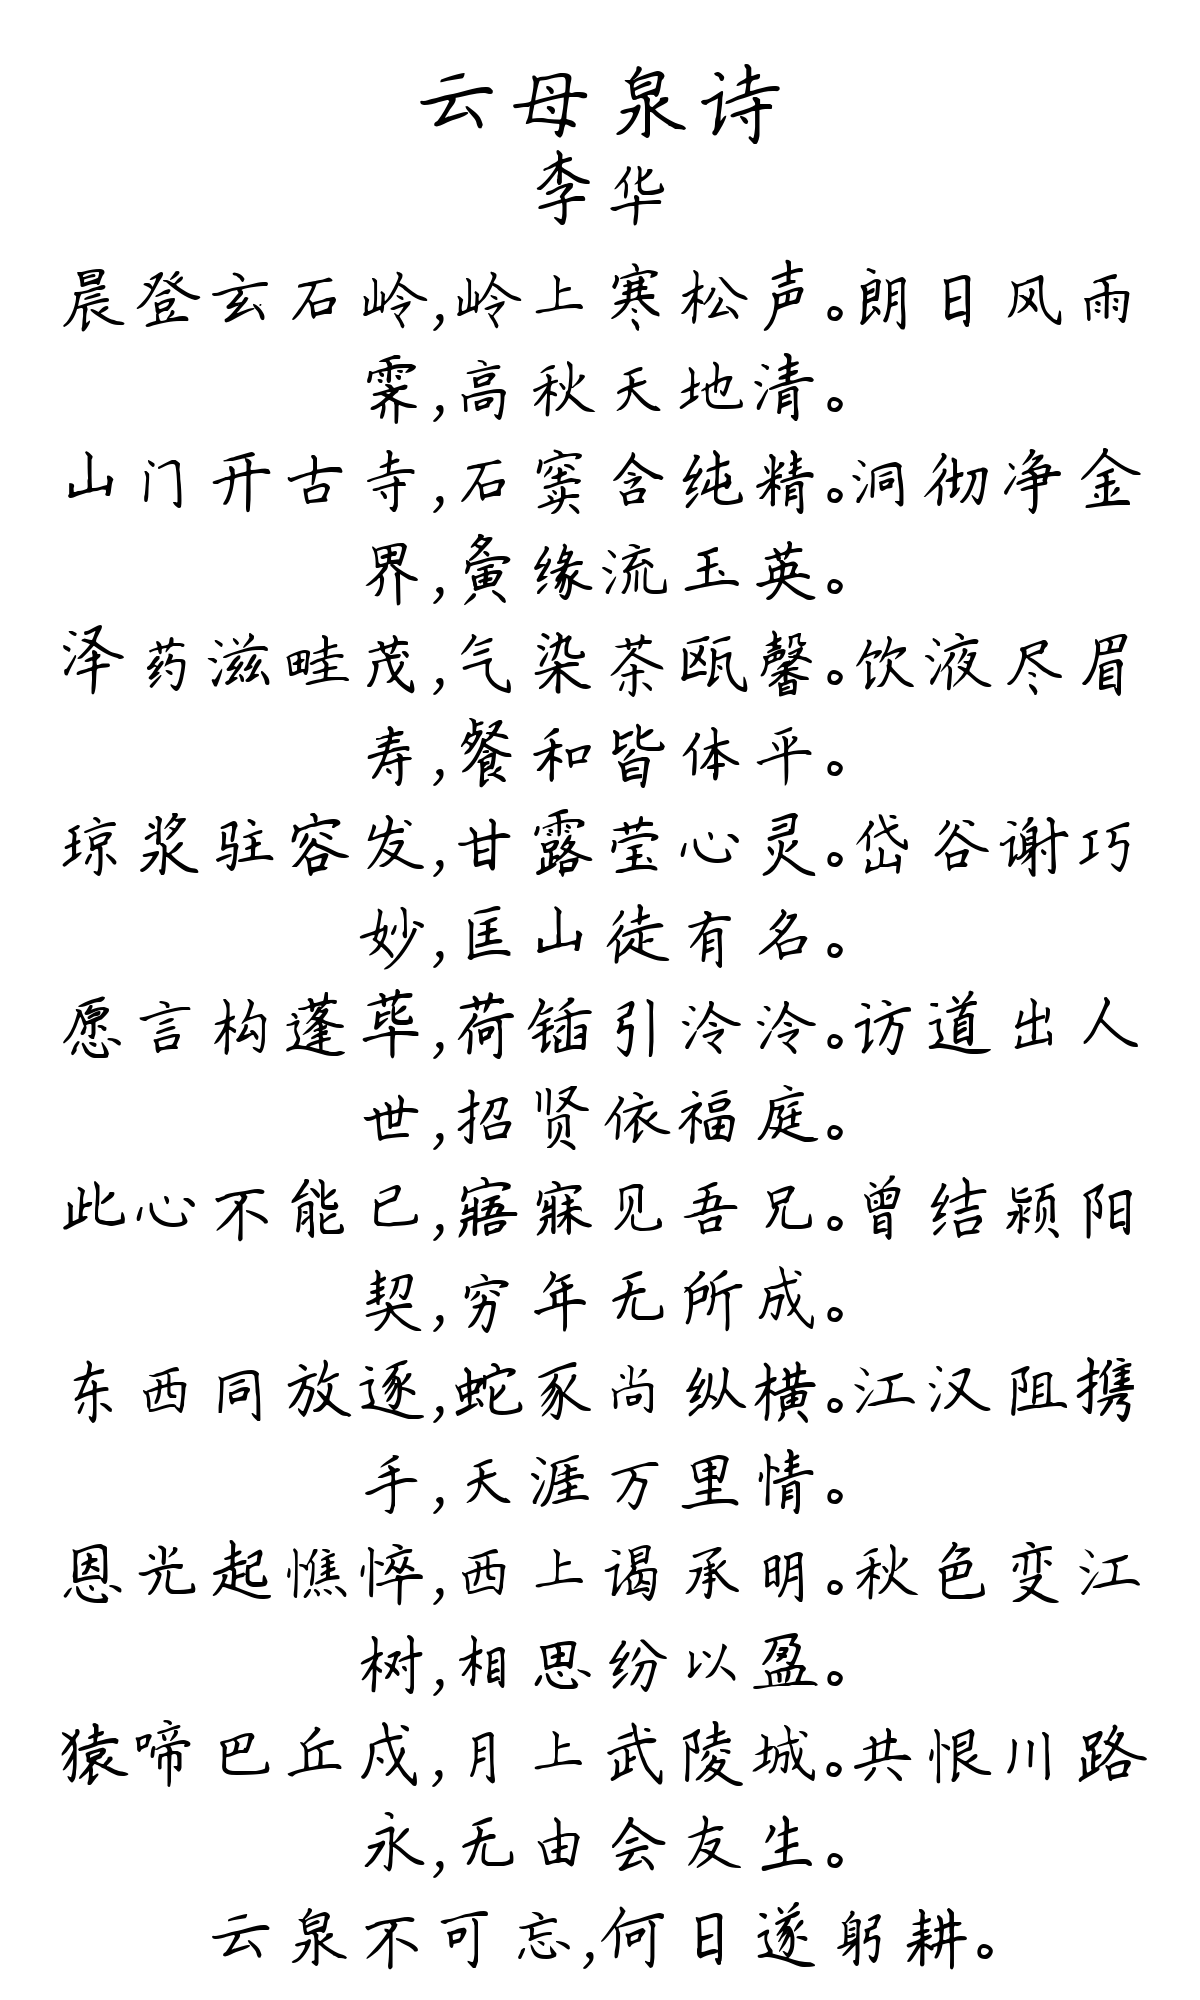 云母泉诗
李华
晨登玄石岭,岭上寒松声。朗日风雨
霁,高秋天地清。
山门开古寺,石窦含纯精。洞彻净金
界,夤缘流玉英。
泽药滋畦茂,气染茶瓯馨。饮液尽眉
寿,餐和皆体平。
琼浆驻容发,甘露莹心灵。岱谷谢巧
妙,匡山徒有名。
愿言构蓬荜,荷锸引泠泠。访道出人
世,招贤依福庭。
此心不能已,寤寐见吾兄。曾结颍阳
契,穷年无所成。
东西同放逐,蛇豕尚纵横。江汉阻携
手,天涯万里情。
恩光起憔悴,西上谒承明。秋色变江
树,相思纷以盈。
猿啼巴丘戍,月上武陵城。共恨川路
永,无由会友生。
云泉不可忘,何日遂躬耕。